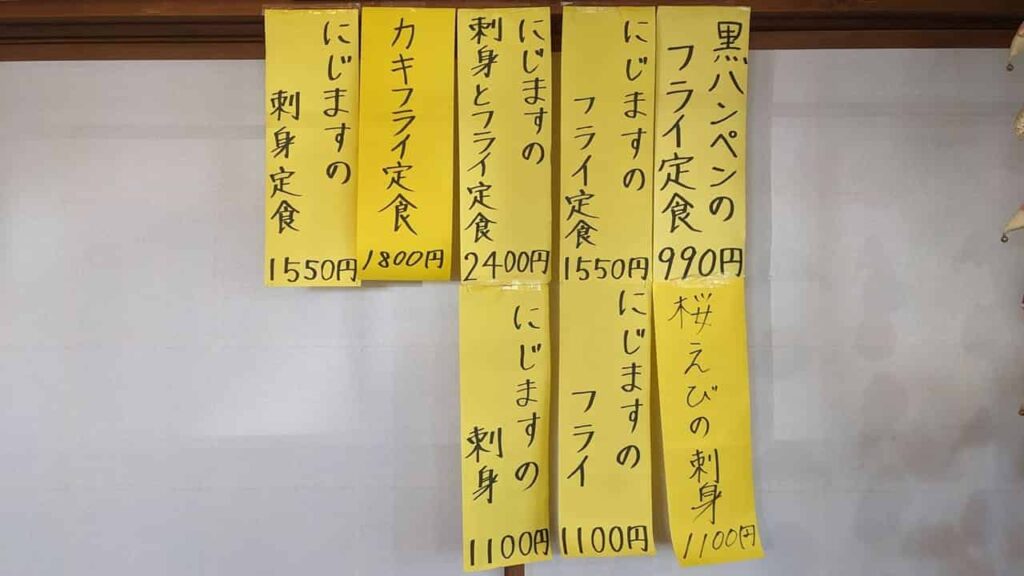 黒ハンペンの
フライ定食
990円
にじますの
フライ定食
1550円
にじますの
刺身とフライ定食
2400円
カキフライ定食
1800円
にじますの
刺身定食
1550円
桜えびの刺身
1100円
にじますの
フライ
1100円
にじますの
刺身
1100円